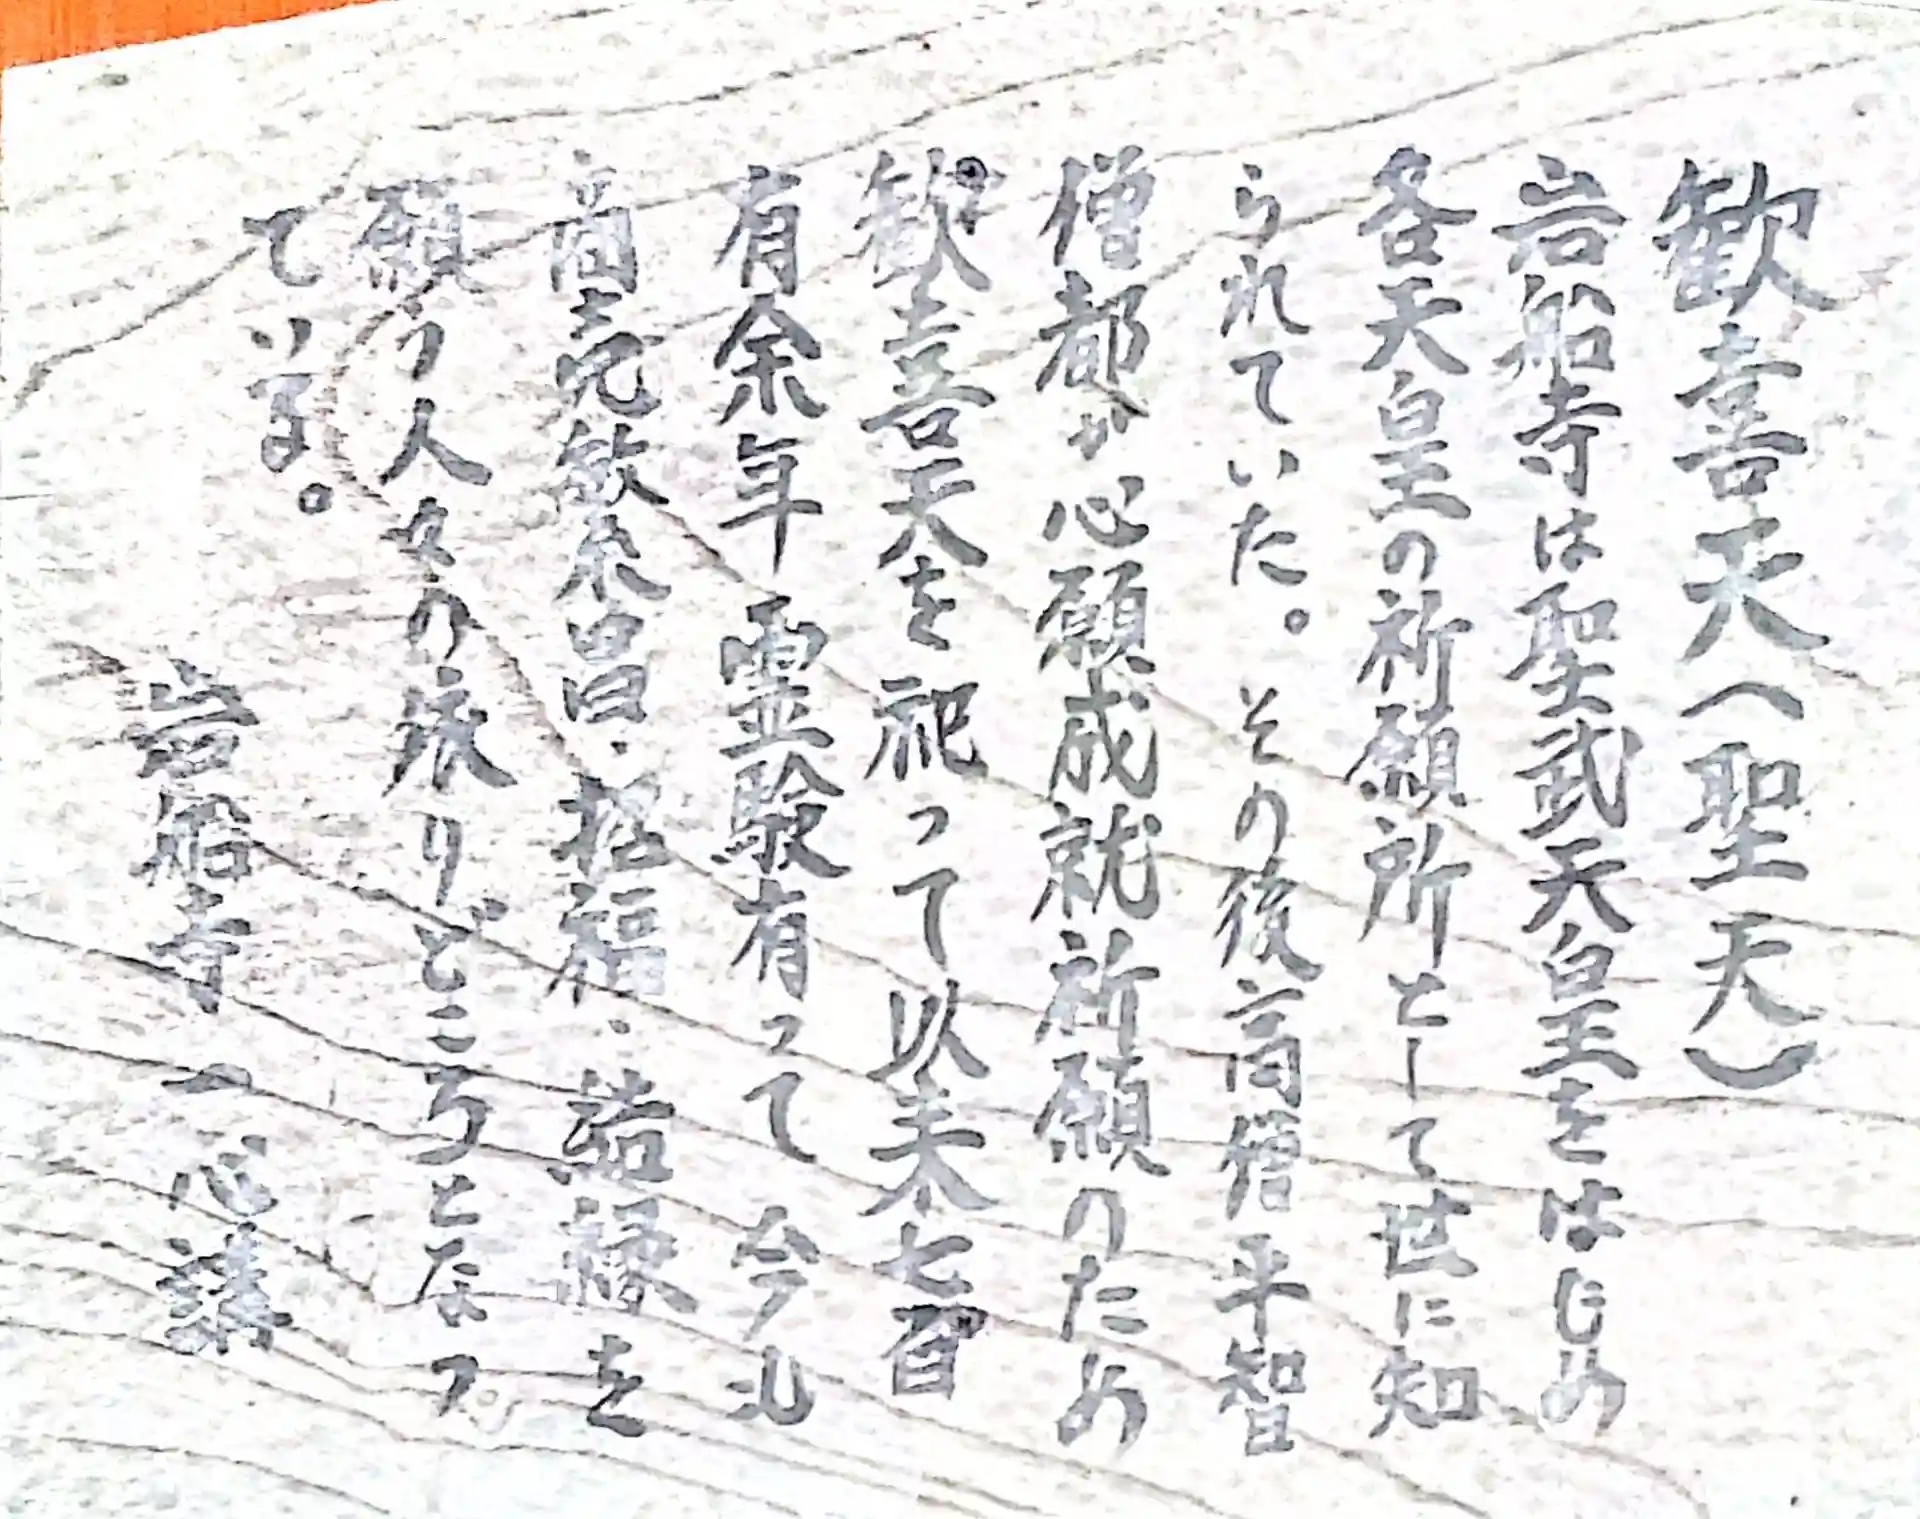 歓喜天（聖天）
岩船寺は聖武天皇をはじめ
各天皇の祈願所として世に知
られていた。その後高僧平智
僧都が心願成就祈願のため
歓喜天を祀って以来七百
有余年霊験有って今も
商売繁昌・招福・諸縁を
願う人々の拠りどころとなっ
ている。
岩船寺一心講